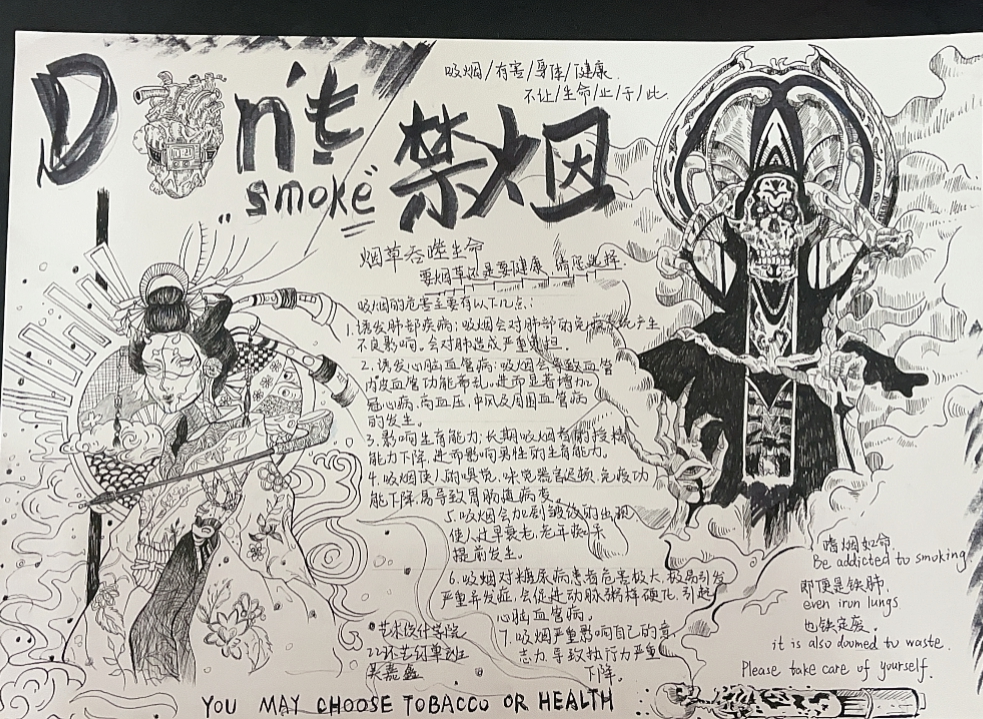 Don't
"smoke"
禁烟
吸烟/有害/身体/健康.
不让/生命/止/于/此.
烟草吞噬生命
要烟草还是要健康,请您选择.
吸烟的危害主要有以下几点:
1.诱发肺部疾病;吸烟会对肺部的免疫系统产生
不良影响.会对肺造成严重负担.
2.诱发心脑血管病;吸烟会导致血管
内皮血管功能紊乱,进而显著增加
冠心病,高血压,中风及周围血管病
的发生。
3.影响生育能力,长期吸烟者的授精
能力下降,进而影响男性的生育能力。
4.吸烟使人的嗅觉.味觉器官迟顿,免疫功
能下降.易导致胃肠道病变。
5.吸烟会加剧皱纹的出现
使人过早衰老,老年
提前发生。
6.吸烟对糖尿病患者危害极大,极易引发
严重并发症,会促进动脉粥样硬化,引起
心脑血管病。
7.吸烟严重影响自己的意
志力.导致执行力严重
下降。
艺术设计学院
22环艺
吴嘉鑫
嗜烟如命.
Be addicted to smoking
即便是铁肺.
even iron lungs
也铁定废.
it is also doomed to waste.
Please take care of yourself.
YOU MAY CHOOSE TOBACCO OR HEALTH